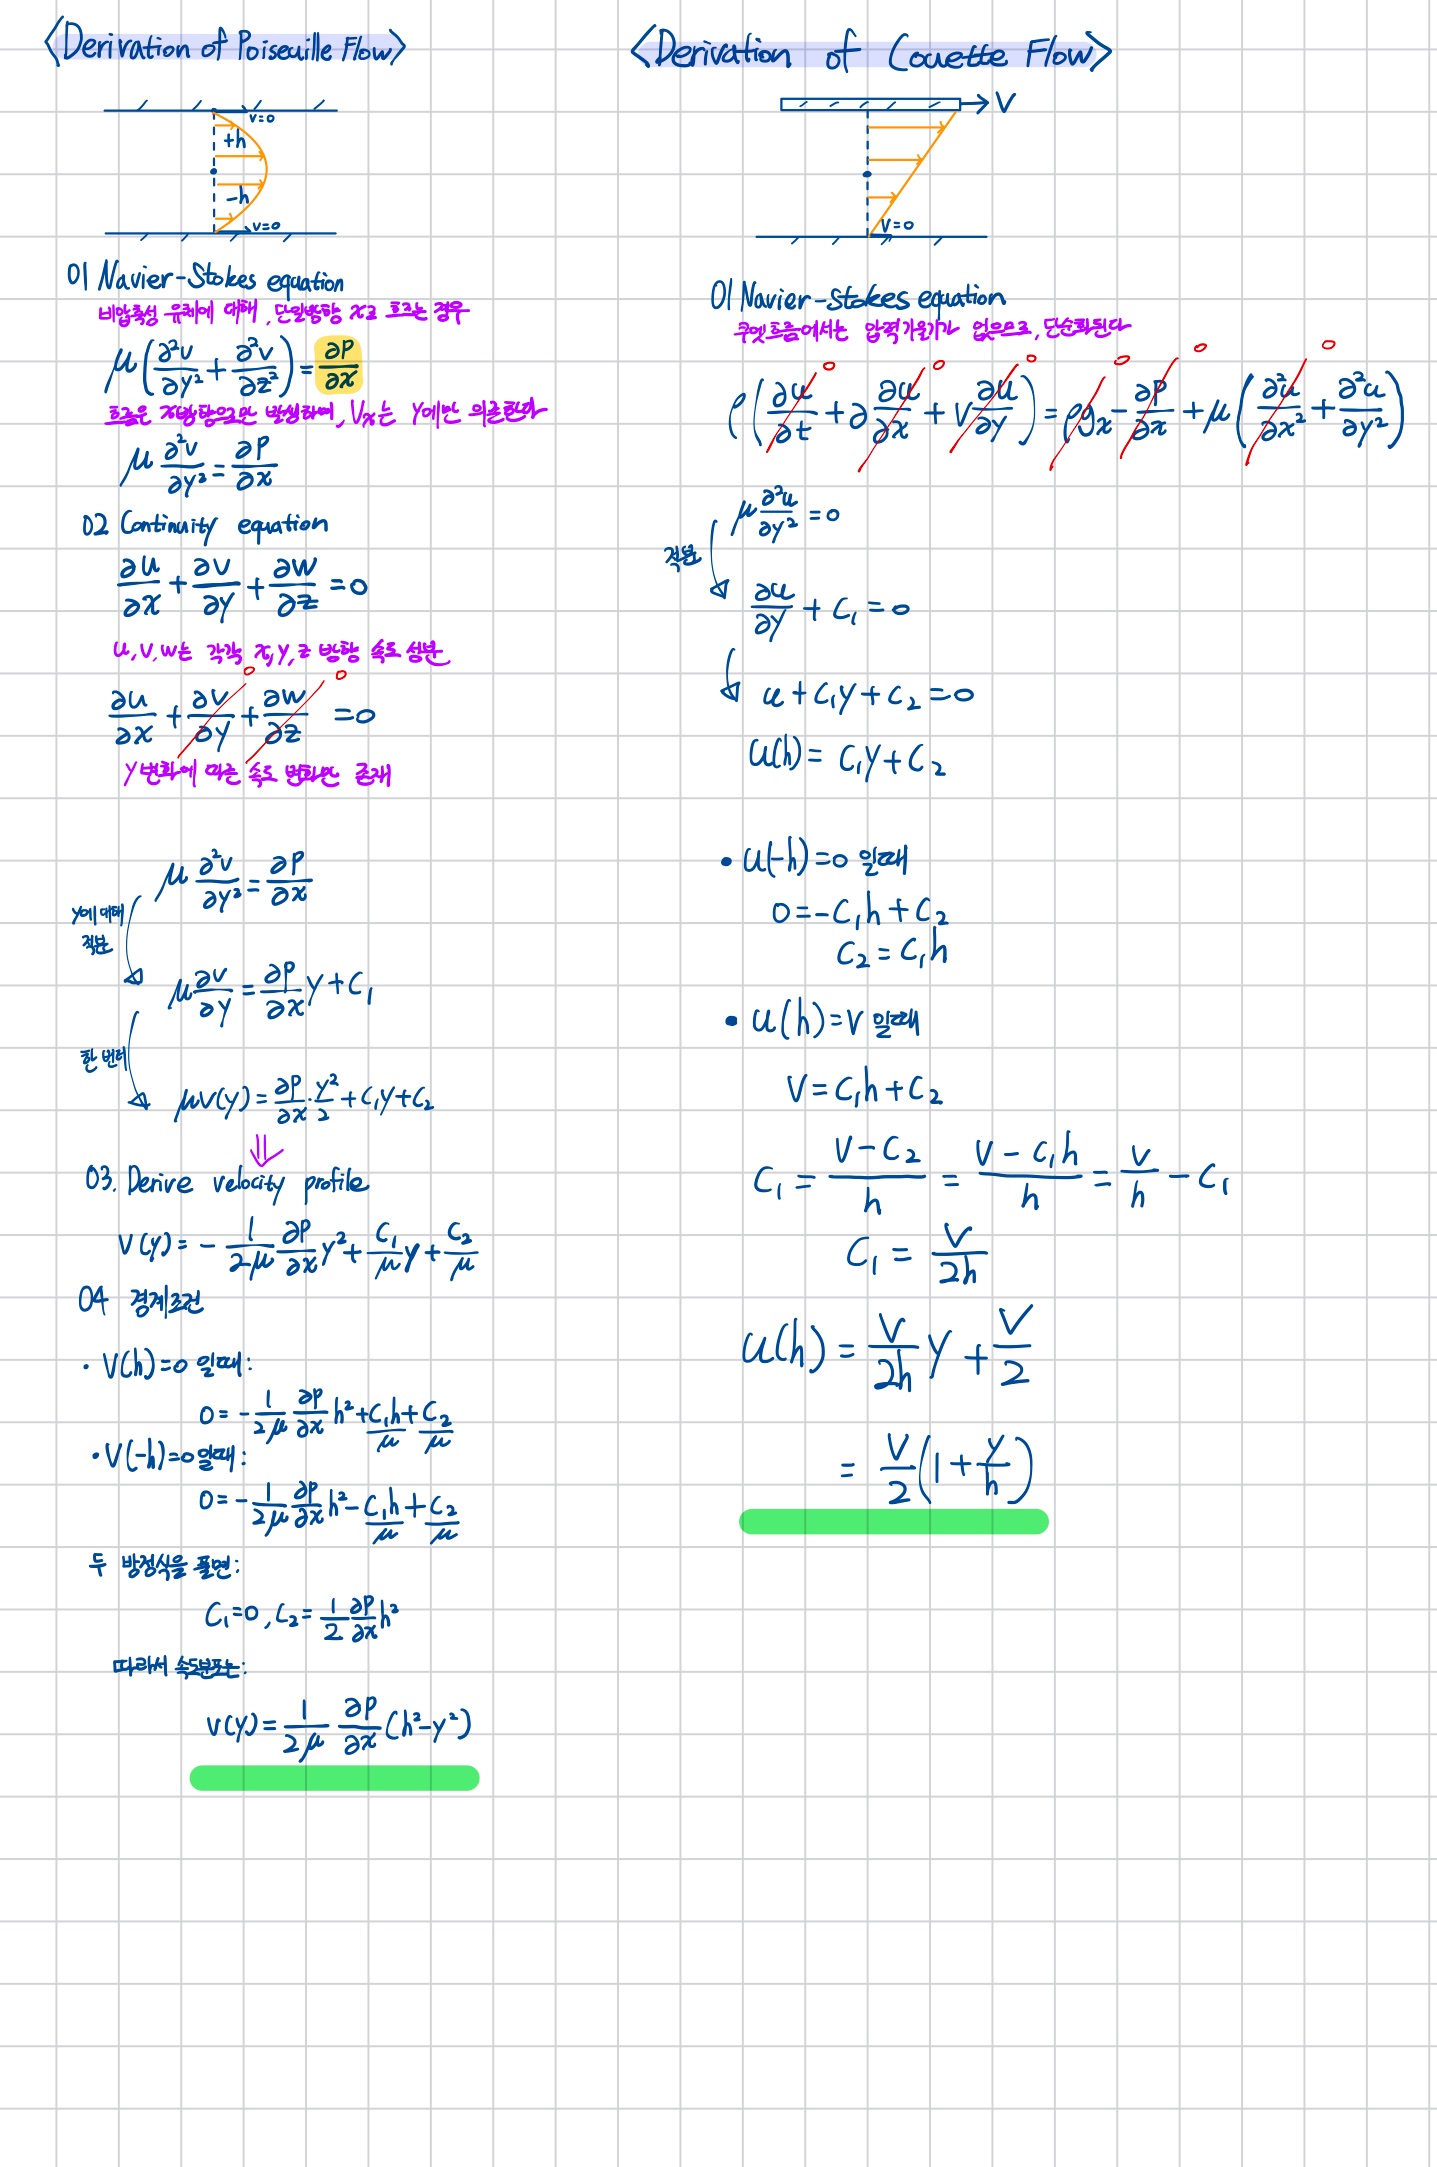 <Derivation of Poiseuille Flow>
v=0
+h
-h
v=0
01 Navier-Stokes equation
비압축성 유체에 대해, 단일방향 x로 흐르는 경우
μ(∂²v/∂y² + ∂²v/∂z²) = ∂P/∂x
흐름은 x방향으로만 발생하며, Vx는 y에만 의존한다
μ ∂²v/∂y² = ∂P/∂x
02 Continuity equation
∂u/∂x + ∂v/∂y + ∂w/∂z = 0
u, v, w는 각각 x, y, z 방향 속도 성분
∂u/∂x + ∂v/∂y + ∂w/∂z = 0
0 0
y 변화에 따른 속도 변화만 존재
μ ∂²v/∂y² = ∂P/∂x
y에 대해
적분
μ ∂v/∂y = ∂P/∂x y + C₁
한 번더
μv(y) = ∂P/∂x · y²/2 + C₁y + C₂
⇓
03. Derive velocity profile
v(y) = - 1/2μ ∂P/∂x y² + C₁/μ y + C₂/μ
04 경계조건
· V(h)=0 일때:
0 = - 1/2μ ∂P/∂x h² + C₁h/μ + C₂/μ
· V(-h)=0 일때:
0 = - 1/2μ ∂P/∂x h² - C₁h/μ + C₂/μ
두 방정식을 풀면:
C₁=0, C₂= 1/2 ∂P/∂x h²
따라서 속도분포는:
v(y) = 1/2μ ∂P/∂x (h²-y²)
<Derivation of Couette Flow>
V
V=0
01 Navier-Stokes equation
쿠엣흐름에서는 압력기울기가 없으므로, 단순화된다
0 0 0 0 0 0
ρ(∂u/∂t + ∂ ∂u/∂x + v ∂u/∂y) = ρgx - ∂P/∂x + μ(∂²u/∂x² + ∂²u/∂y²)
μ ∂²u/∂y² = 0
적분
∂u/∂y + C₁ = 0
u + C₁y + C₂ = 0
u(h) = C₁y + C₂
• u(-h)=0 일때
0 = -C₁h + C₂
C₂ = C₁h
• u(h)=V 일때
V = C₁h + C₂
C₁ = V-C₂/h = V-C₁h/h = V/h - C₁
C₁ = V/2h
u(h) = V/2h y + V/2
= V/2 (1 + y/h)